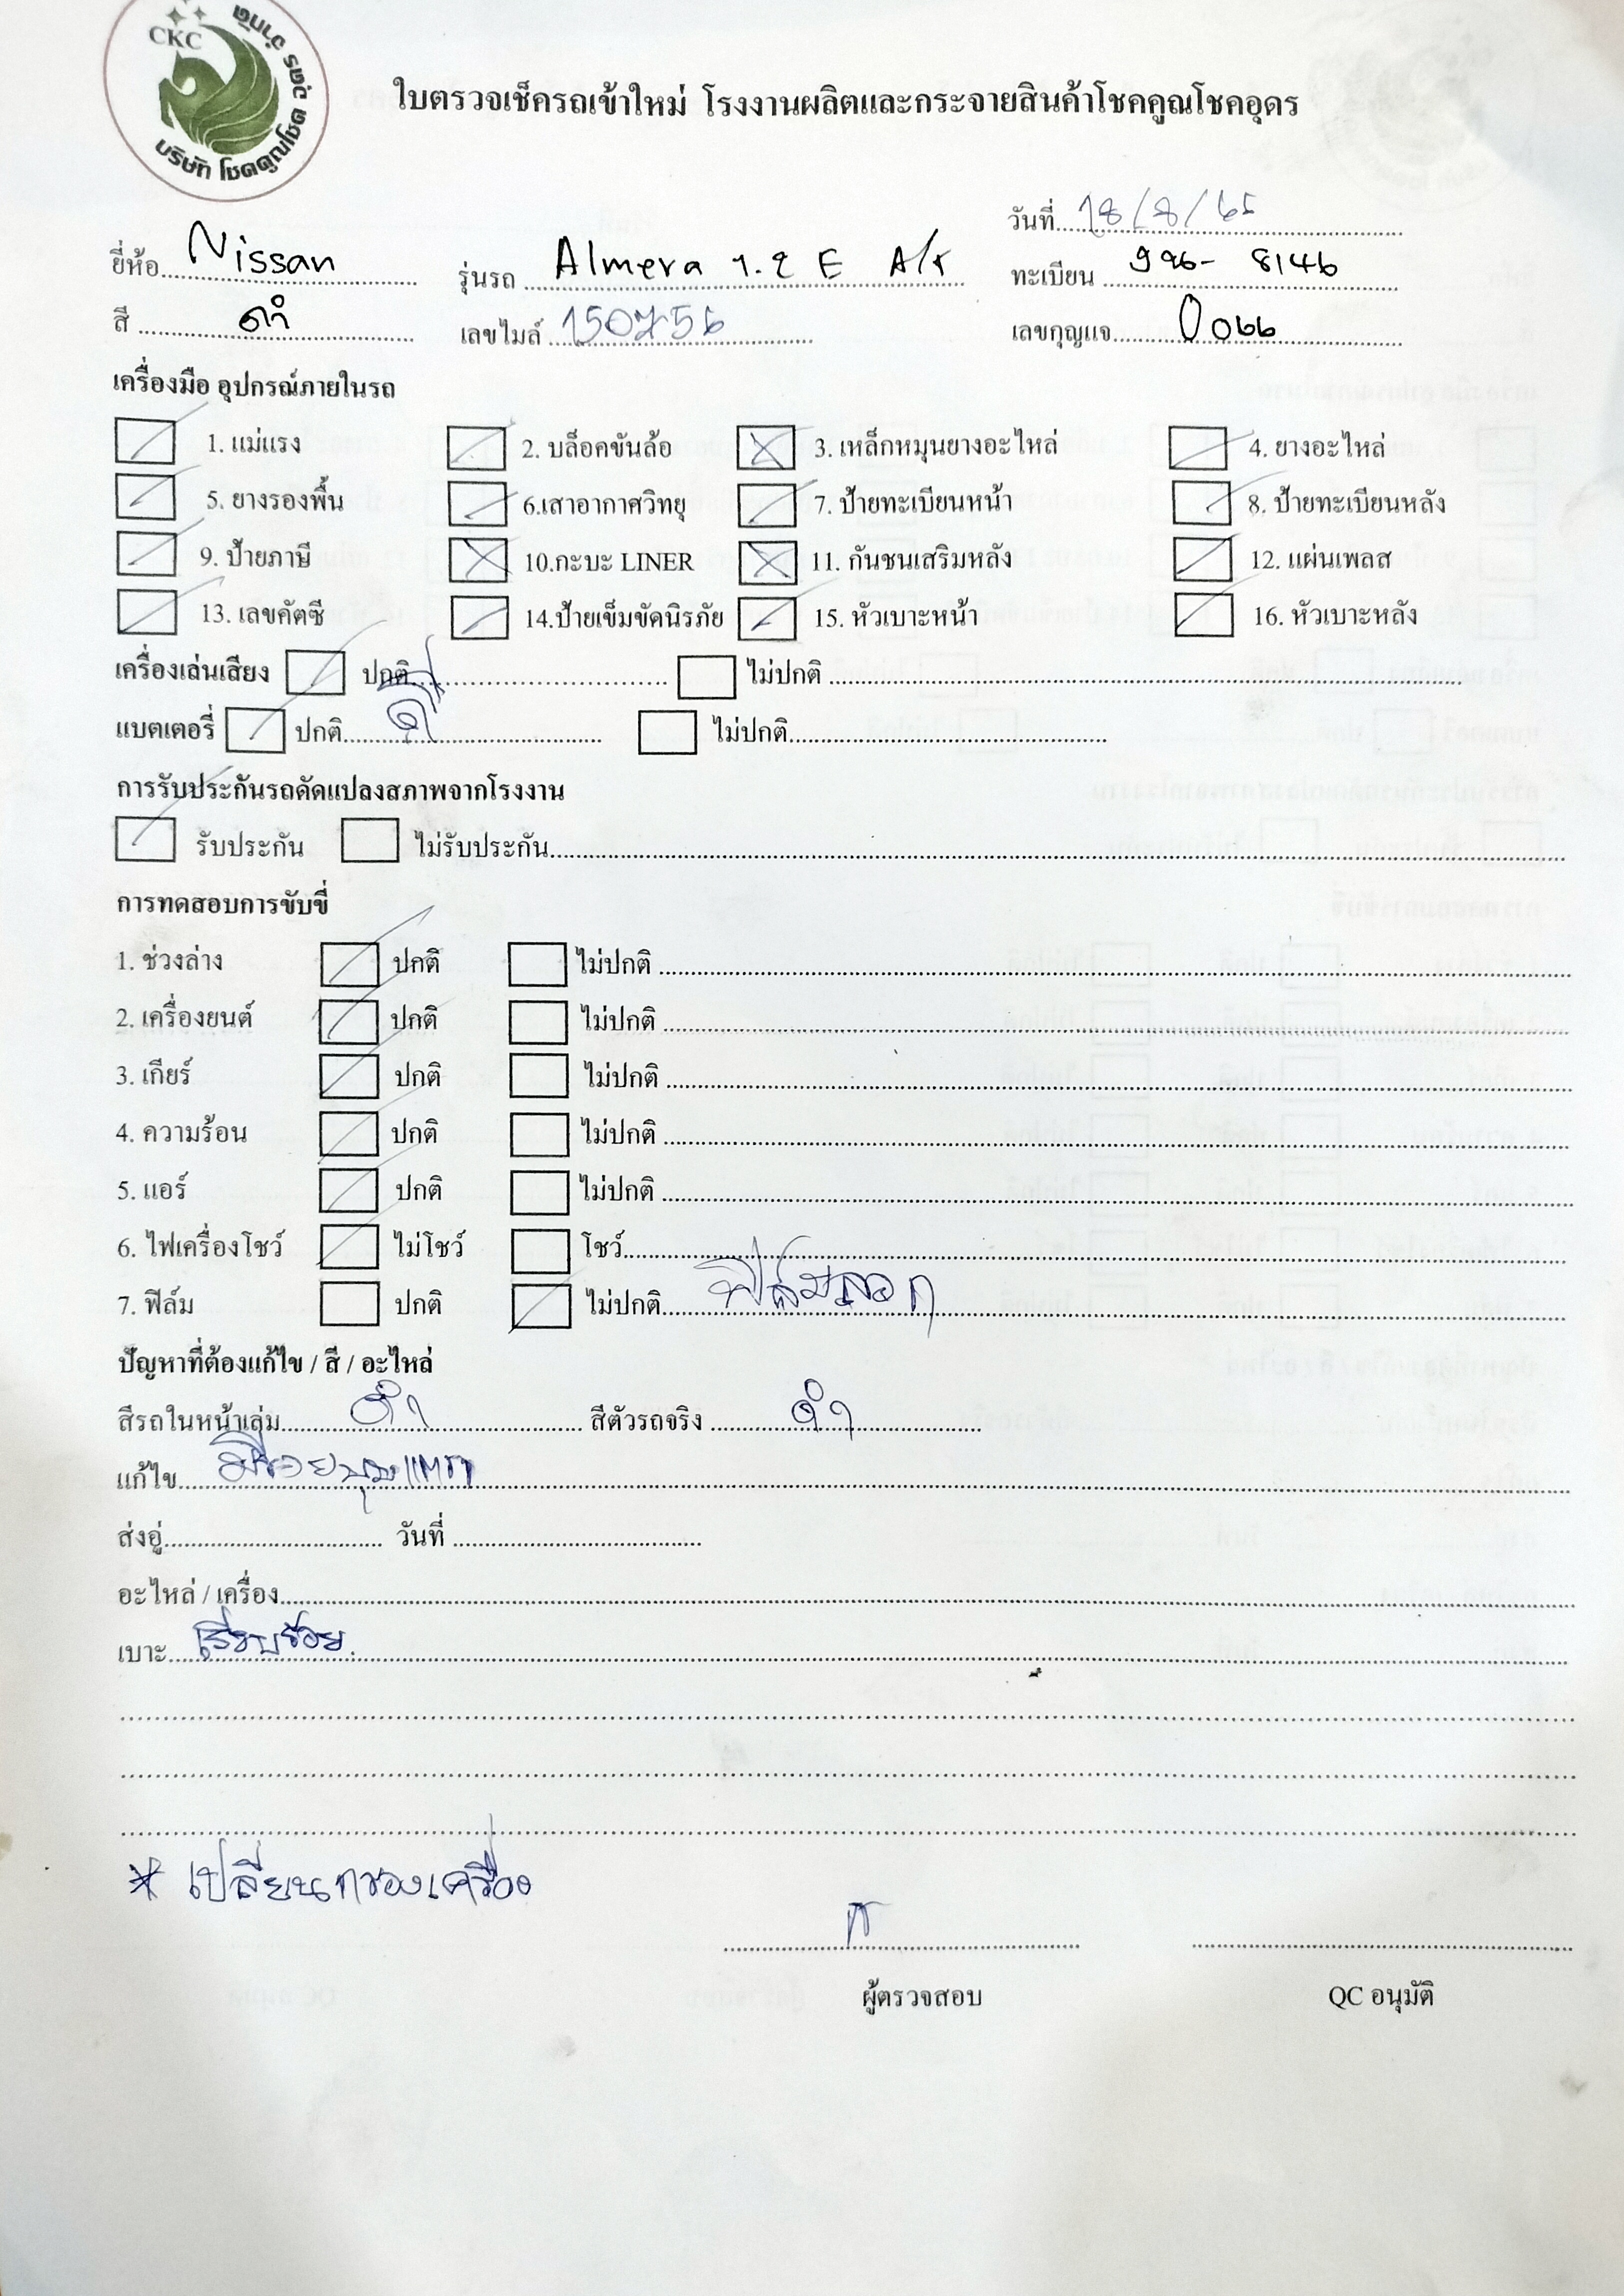 CKC
บริษัท โชคคูณโชค อุดร จำกัด
ใบตรวจเช็ครถเข้าใหม่ โรงงานผลิตและกระจายสินค้าโชคคูณโชคอุดร
วันที่ 18/8/65
ยี่ห้อ Nissan รุ่นรถ Almera 1.2 E A/T ทะเบียน 8146
สี ดำ เลขไมล์ 150756 เลขกุญแจ 0066
เครื่องมือ อุปกรณ์ภายในรถ
1. แม่แรง 2. บล็อคขันล้อ 3. เหล็กหมุนยางอะไหล่ 4. ยางอะไหล่
5. ยางรองพื้น 6.เสาอากาศวิทยุ 7. ป้ายทะเบียนหน้า 8. ป้ายทะเบียนหลัง
9. ป้ายภาษี 10.กะบะ LINER 11. กันชนเสริมหลัง 12. แผ่นเพลส
13. เลขคัตซี 14.ป้ายเข็มขัดนิรภัย 15. หัวเบาะหน้า 16. หัวเบาะหลัง
เครื่องเล่นเสียง ปกติ ไม่ปกติ
แบตเตอรี่ ปกติ ไม่ปกติ
การรับประกันรถดัดแปลงสภาพจากโรงงาน
รับประกัน ไม่รับประกัน
การทดสอบการขับขี่
1. ช่วงล่าง ปกติ ไม่ปกติ
2. เครื่องยนต์ ปกติ ไม่ปกติ
3. เกียร์ ปกติ ไม่ปกติ
4. ความร้อน ปกติ ไม่ปกติ
5. แอร์ ปกติ ไม่ปกติ
6. ไฟเครื่องโชว์ ไม่โชว์ โชว์
7. ฟิล์ม ปกติ ไม่ปกติ ฟิล์มลอก
ปัญหาที่ต้องแก้ไข / สี / อะไหล่
สีรถในหน้าเล่ม ดำ สีตัวรถจริง ดำ
แก้ไข
ส่งอู่ วันที่
อะไหล่ / เครื่อง
เบาะ เรียบร้อย
* เปลี่ยนกรองเครื่อง
ผู้ตรวจสอบ QC อนุมัติ